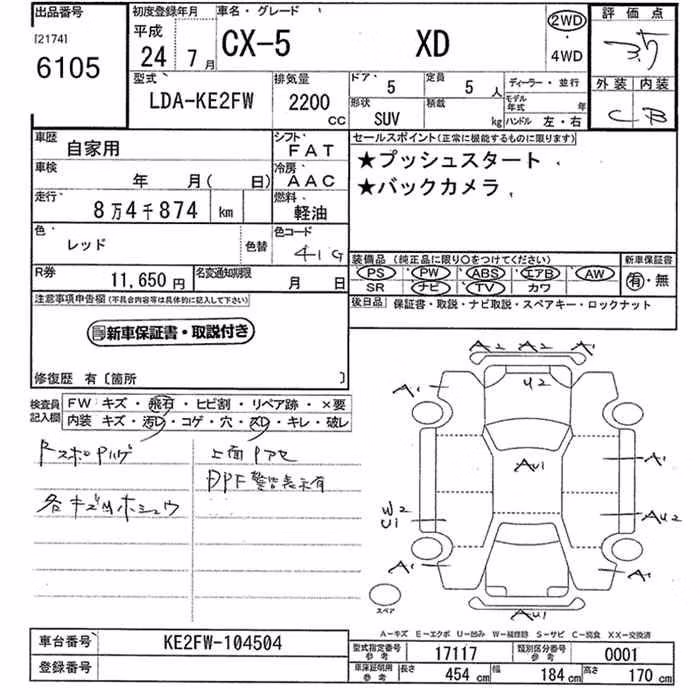 出品番号 初度登録年月 車名・グレード 2WD 評価点
[2174] 平成 CX-5 XD 3.5
6105 24 7月 4WD
外装 内装
C B
型式 排気量 ドア 定員 ディーラー・並行
LDA-KE2FW 2200 CC 5 5人
形状 積載 モデル年式 年
SUV kg ハンドル 左・右
車歴 自家用 シフト FAT セールスポイント(正常に機能するものに限ります)
★プッシュスタート
★バックカメラ
車検 年 月( 日) 冷房 AAC
走行 8万4千874 km 燃料 軽油
色 レッド 色替 色コード 41G
装備品 (純正品に限り〇をつけてください) 新車保証書
PS PW ABS エアB AW 有・無
SR ナビ TV カワ
R券 11,650円 名変通知期限 月 日
後日品 保証書・取説・ナビ取説・スペアキー・ロックナット
注意事項申告欄(不具合内容等は具体的に記入して下さい)
新車保証書・取説付き
修復歴 有〔箇所 〕
検査員記入欄 FW キズ・飛石・ヒビ割・リペア跡・×要
内装 キズ・汚レ・コゲ・穴・スレ・キレ・破レ
上面
DPF警告表示有
A2 A2 A1
A1 U2
AU1
A1
W2
U1
AU2
A1 A1
AU1
スペア
A-キズ E-エクボ U-凹み W-補修跡 S-サビ C-腐食 XX-交換済
車台番号 KE2FW-104504
登録番号
型式指定番号 参考 17117 類別区分番号 参考 0001
車庫証明用 参考 長さ 454cm 幅 184cm 高さ 170cm